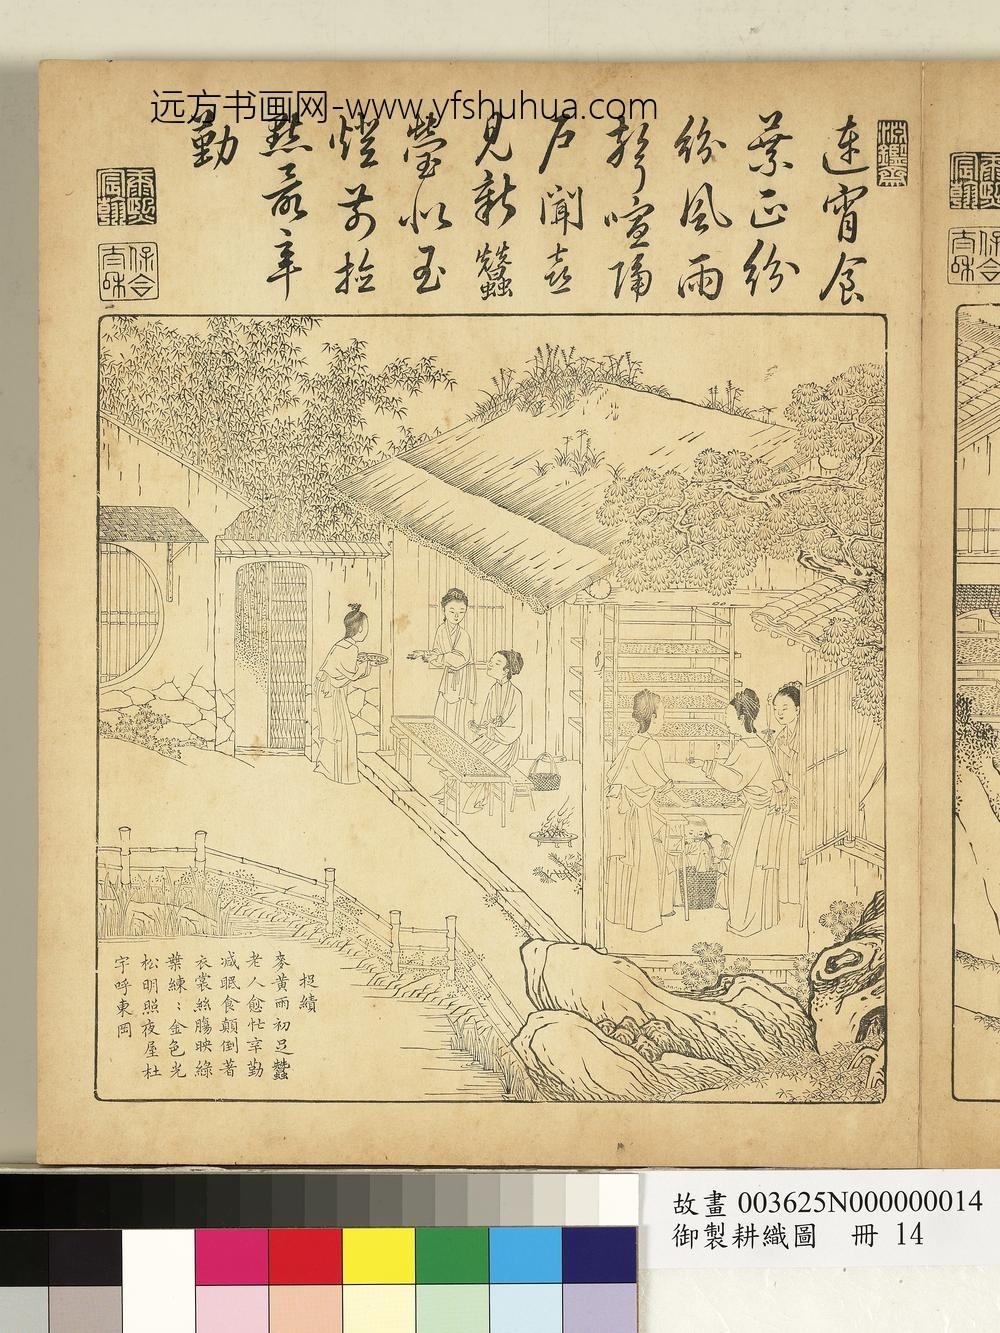 远方书画网-www.yfshuhua.com
連宵食
葉正紛
紛風雨
聲喧隔
戶聞喜
見新蠶
瑩似玉
燈前檢
點最辛
勤
淵鑒齋
康熙宸翰
保合太和
捉績
麥黃雨初足蠶
老人愈忙辛勤
减眠食顛倒著
衣裳絲膓映綠
葉練〻金色光
松明照夜屋杜
宇呼東岡
故畫 003625N000000014
御製耕織圖 冊 14